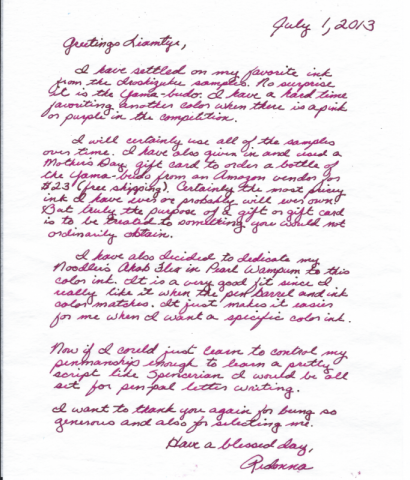 July 1, 2013
Greetings Liamtye,
I have settled on my favorite ink
from the Iroshizuku samples. No surprise
it is the Yama-budo. I have a hard time
favoriting another color when there is a pink
or purple in the competition.
I will certainly use all of the samples
over time. I have also given in and used a
Mother's Day gift card to order a bottle of
the Yama-budo from an Amazon vendor for
$23 (free shipping). Certainly the most pricey
ink I have ever or probably will ever own!
But truly the purpose of a gift or gift card
is to be treated to something you would not
ordinarily obtain.
I have also decided to dedicate my
Noodler's Ahab Flex in Pearl Wampum to this
color ink. It is a very good fit since I
really like it when the pen barrel and ink
color matches. It just makes it easier
for me when I want a specific color ink.
Now if I could just learn to control my
penmanship enough to learn a pretty
script like Spencerian I would be all
set for pen pal letter writing.
I want to thank you again for being so
generous and also for selecting me.
Have a blessed day,
Ridonna